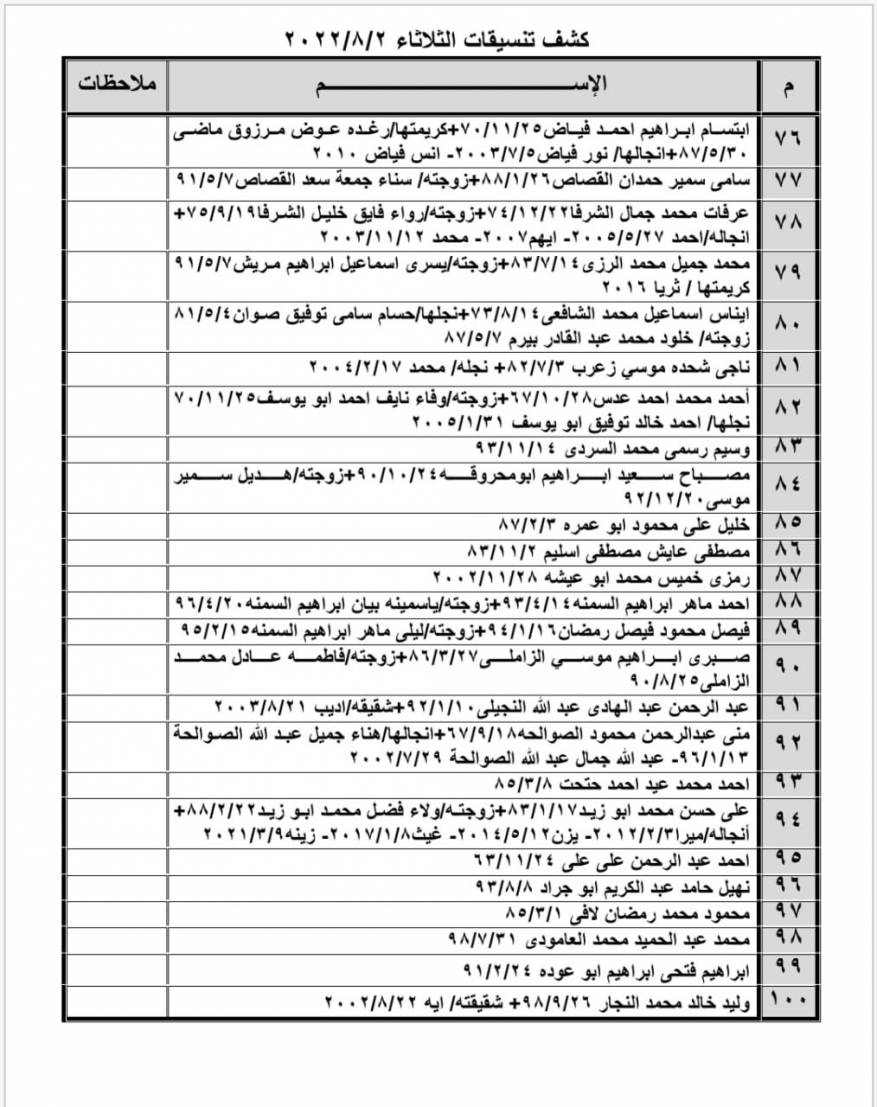 كشف تنسيقات الثلاثاء ٢٠٢٢/٨/٢
م الإســـم ملاحظات
٧٦ ابتسام ابراهيم احمد فياض٧٠/١١/٢٥+كريمتها/رغده عوض مرزوق ماضى
٨٧/٥/٣٠+انجالها/ نور فياض٢٠٠٣/٧/٥- انس فياض ٢٠١٠
٧٧ سامى سمير حمدان القصاص٨٨/١/٢٦+زوجته/ سناء جمعة سعد القصاص٩١/٥/٧
٧٨ عرفات محمد جمال الشرفا٧٤/١٢/٢٢+زوجته/رواء فايق خليل الشرفا٧٥/٩/١٩+
انجاله/احمد ٢٠٠٥/٥/٢٧- ايهم٢٠٠٧- محمد ٢٠٠٣/١١/١٢
٧٩ محمد جميل محمد الرزى٨٣/٧/١٤+زوجته/يسرى اسماعيل ابراهيم مريش٩١/٥/٧
كريمتها / ثريا ٢٠١٦
٨٠ ايناس اسماعيل محمد الشافعى٧٣/٨/١٤+نجلها/حسام سامى توفيق صوان٨١/٥/٤
زوجته/ خلود محمد عبد القادر بيرم ٨٧/٥/٧
٨١ ناجى شحده موسي زعرب ٨٢/٧/٣+ نجله/ محمد ٢٠٠٤/٢/١٧
٨٢ أحمد محمد احمد عدس٦٧/١٠/٢٨+زوجته/وفاء نايف احمد ابو يوسف٧٠/١١/٢٥
نجلها/ احمد خالد توفيق ابو يوسف ٢٠٠٥/١/٣١
٨٣ وسيم رسمى محمد السردى ٩٣/١١/١٤
٨٤ مصباح سعيد ابراهيم ابومحروقه٩٠/١٠/٢٤+زوجته/هديل سمير
موسى٩٢/١٢/٢٠
٨٥ خليل على محمود ابو عمره ٨٧/٢/٣
٨٦ مصطفى عايش مصطفى اسليم ٨٣/١١/٢
٨٧ رمزى خميس محمد ابو عيشه ٢٠٠٢/١١/٢٨
٨٨ احمد ماهر ابراهيم السمنه٩٣/٤/١٤+زوجته/ياسمينه بيان ابراهيم السمنه٩٦/٤/٢٠
٨٩ فيصل محمود فيصل رمضان٩٤/١/١٦+زوجته/ليلى ماهر ابراهيم السمنه٩٥/٢/١٥
٩٠ صبرى ابراهيم موسي الزاملى٨٦/٣/٢٧+زوجته/فاطمه عادل محمد
الزاملى٩٠/٨/٢٥
٩١ عبد الرحمن عبد الهادى عبد الله النجيلى٩٢/١/١٠+شقيقه/اديب ٢٠٠٣/٨/٢١
٩٢ منى عبدالرحمن محمود الصوالحه٦٧/٩/١٨+انجالها/هناء جميل عبد الله الصوالحة
٩٦/١/١٣- عبد الله جمال عبد الله الصوالحة ٢٠٠٢/٧/٢٩
٩٣ احمد محمد عيد احمد حتحت ٨٥/٣/٨
٩٤ على حسن محمد ابو زيد٨٣/١/١٧+زوجته/ولاء فضل محمد ابو زيد٨٨/٢/٢٢+
أنجاله/ميرا٢٠١٢/٢/٣- يزن٢٠١٤/٥/١٢- غيث٢٠١٧/١/٨- زينه٢٠٢١/٣/٩
٩٥ احمد عبد الرحمن على على ٦٣/١١/٢٤
٩٦ نهيل حامد عبد الكريم ابو جراد ٩٣/٨/٨
٩٧ محمود محمد رمضان لافى ٨٥/٣/١
٩٨ محمد عبد الحميد محمد العامودى ٩٨/٧/٣١
٩٩ ابراهيم فتحى ابراهيم ابو عوده ٩١/٢/٢٤
١٠٠ وليد خالد محمد النجار ٩٨/٩/٢٦+ شقيقته/ ايه ٢٠٠٢/٨/٢٢